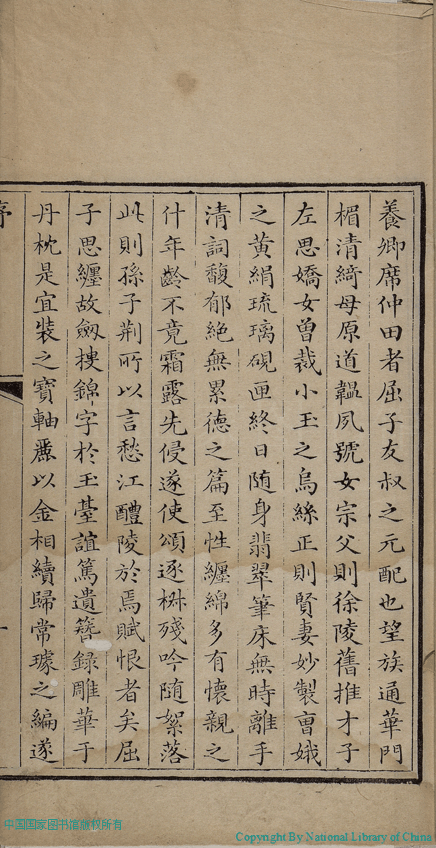 養卿席仲田者屈子友叔之元配也望族通華門
楣清綺母原道韞夙號女宗父則徐陵舊推才子
左思嬌女曾裁小玉之烏絲正則賢妻妙製曹娥
之黄絹琉璃硯匣終日隨身翡翠筆床無時離手
清詞馥郁絶無累德之篇至性纏綿多有懷親之
什年齡不竟霜露先侵遂使頌逐椒殘吟隨絮落
此則孫子荆所以言愁江醴陵於焉賦恨者矣屈
子思纏故劔摟錦字於玉臺誼篤遺簪録雕華于
丹枕是宜裝之寶軸薦以金相續歸常璩之編遂
序
中国国家图书馆版权所有
Copyright By National Library of China